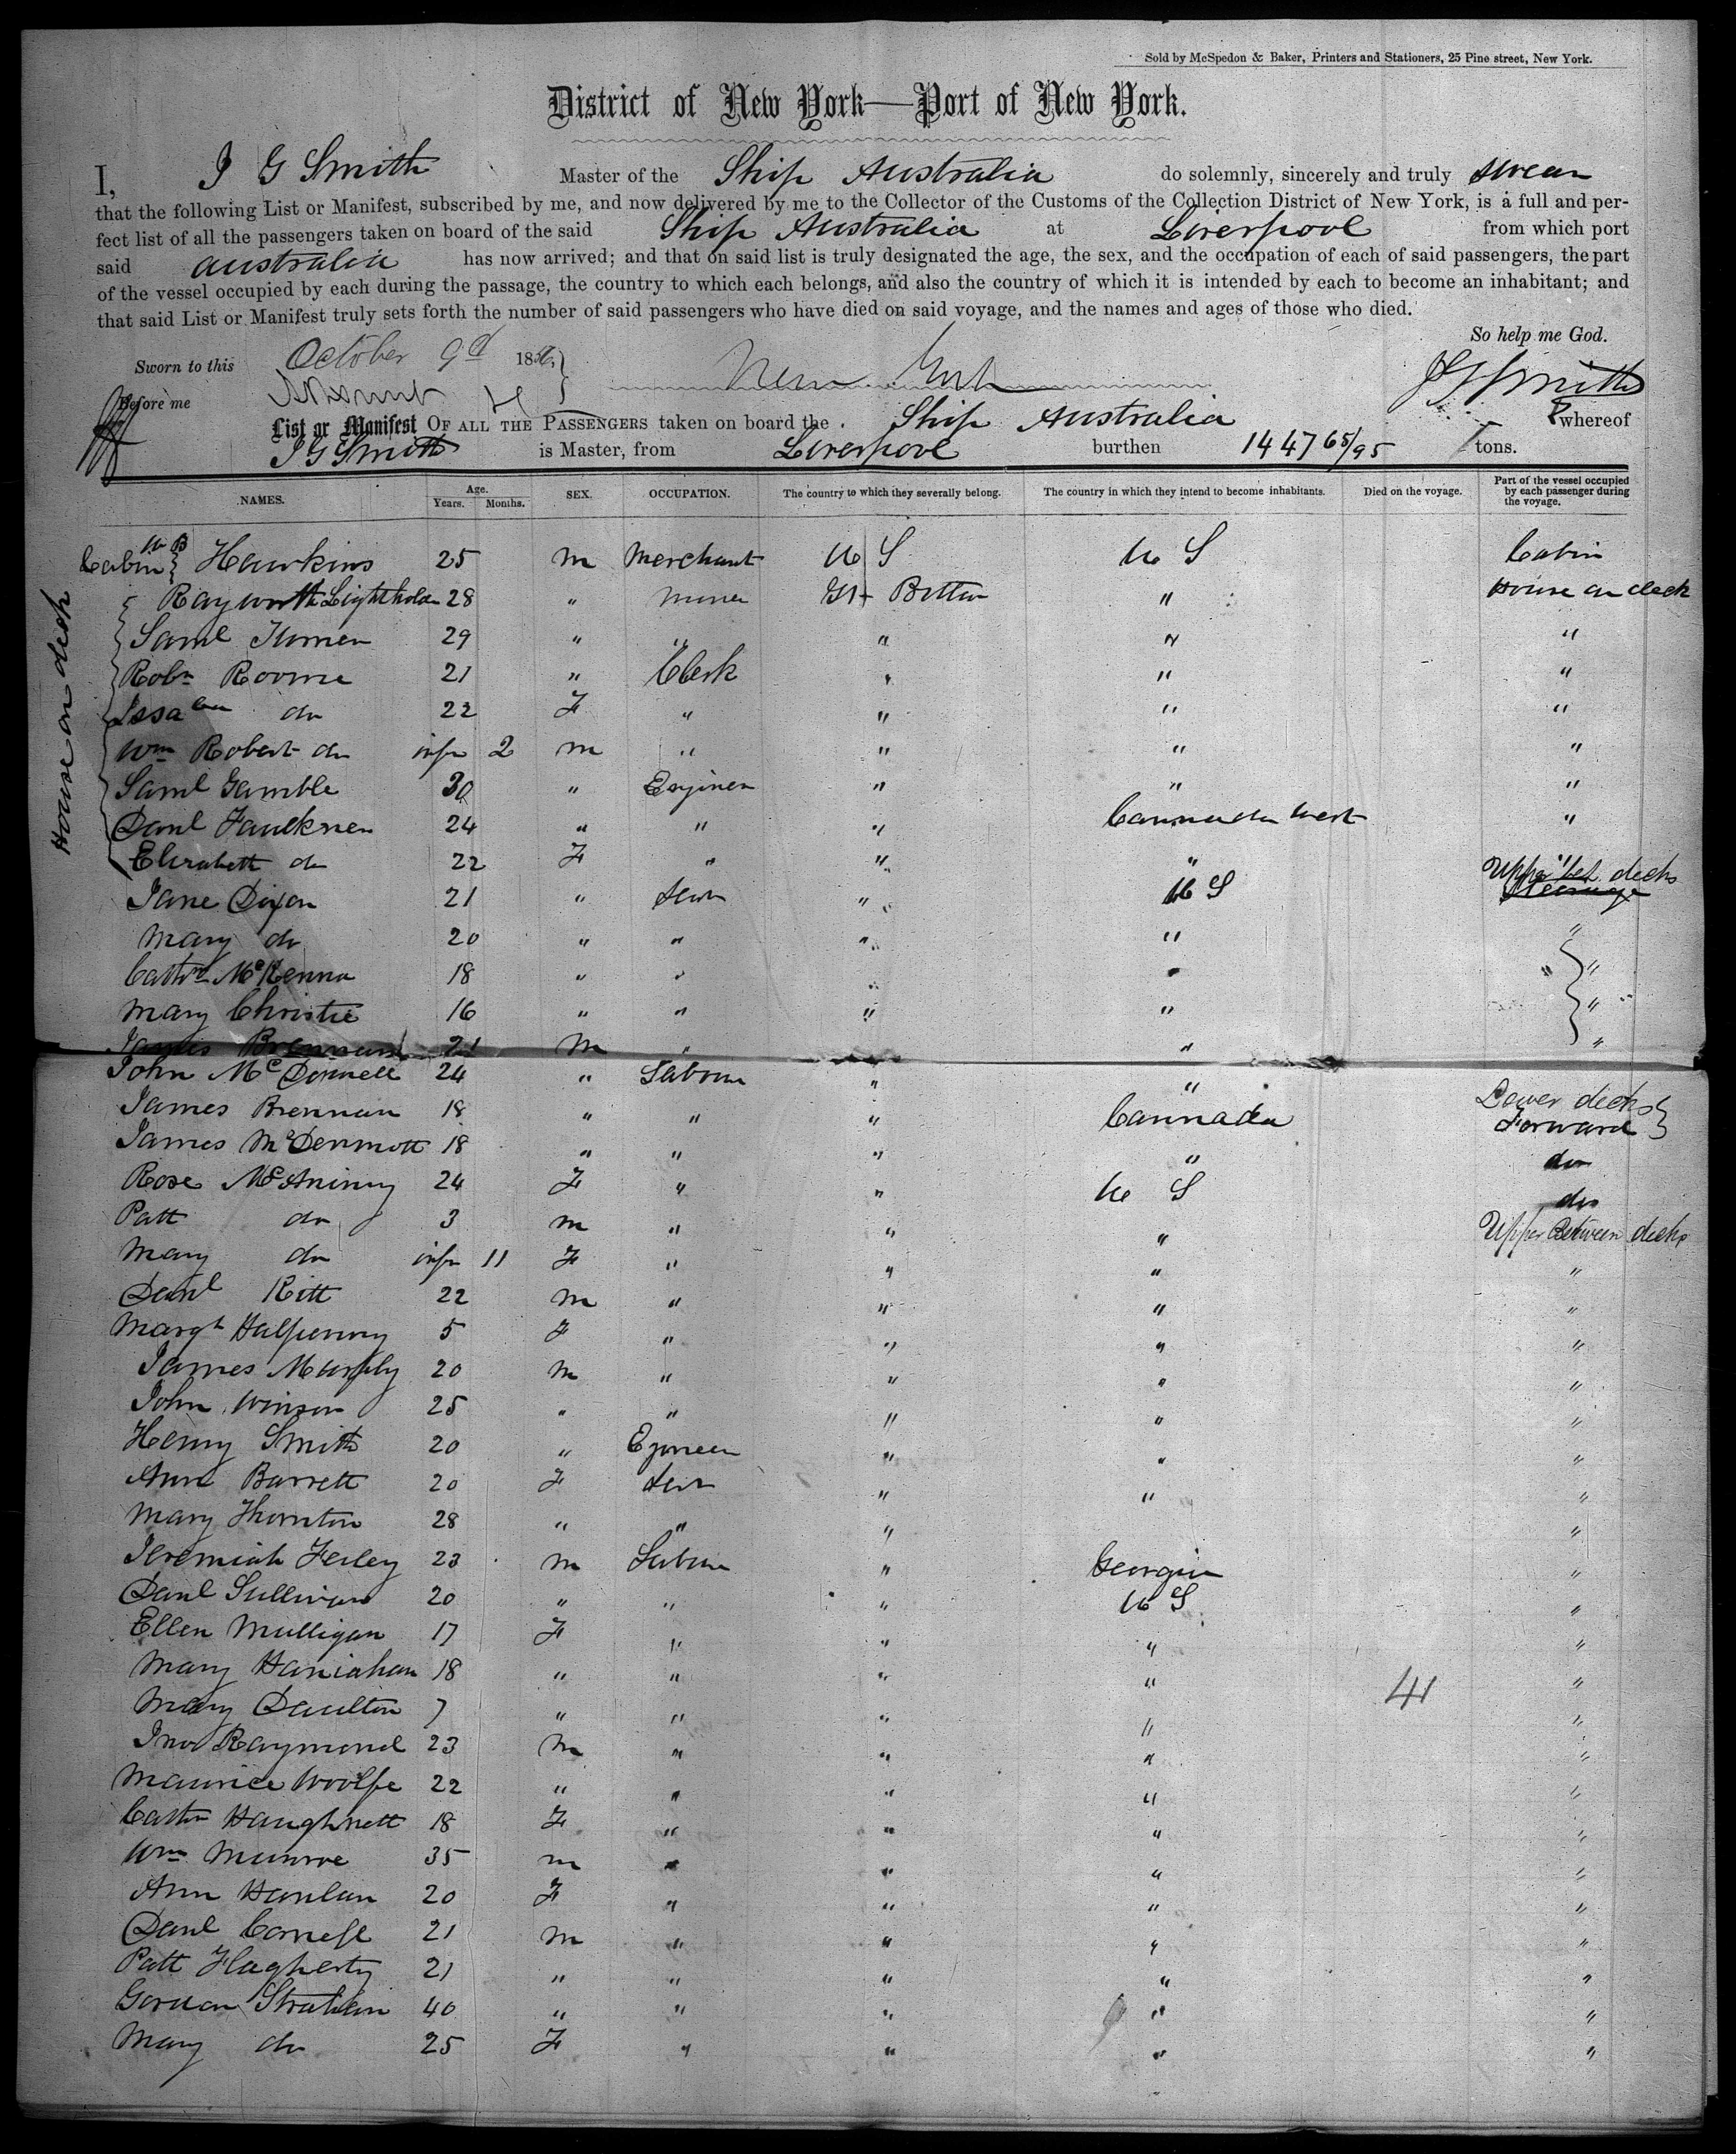 Sold by McSpedon & Baker, Printers and Stationers, 25 Pine street, New York.
District of New York—Port of New York.
I, J G Smith Master of the Ship Australia do solemnly, sincerely and truly swear
that the following List or Manifest, subscribed by me, and now delivered by me to the Collector of the Customs of the Collection District of New York, is a full and per-
fect list of all the passengers taken on board of the said Ship Australia at Liverpool from which port
said Australia has now arrived; and that on said list is truly designated the age, the sex, and the occupation of each of said passengers, the part
of the vessel occupied by each during the passage, the country to which each belongs, and also the country of which it is intended by each to become an inhabitant; and
that said List or Manifest truly sets forth the number of said passengers who have died on said voyage, and the names and ages of those who died.
So help me God.
Sworn to this October 9d 1856 New York J G Smith
Before me
List or Manifest OF ALL THE PASSENGERS taken on board the Ship Australia whereof
J G Smith is Master, from Liverpool burthen 1447 65/95 tons.
NAMES. Age. Years. Months. SEX. OCCUPATION. The country to which they severally belong. The country in which they intend to become inhabitants. Died on the voyage. Part of the vessel occupied by each passenger during the voyage.
House on deck
Cabin { W B Hawkins 25 m Merchant U S U S Cabin
Rayworth 28 " Miner Gt " House on deck
Saml 29 " " " " "
Robt Roome 21 " Clerk " " "
Issa do 22 F " " " "
Wm Robert do infn 2 m " " " "
Saml Gamble 30 " Enginer " " "
Danl Faulkner 24 " " " Cannada West "
Elizabeth do 22 F " " " "
Jane Dixon 21 " " U S Upper bet decks
Mary do 20 " " " " "
Cathn McKenna 18 " " " " "
Mary Christie 16 " " " " "
James Brennan 21 m " " "
John McDonnell 24 " Labour " "
James Brennan 18 " " " Cannada Lower decks Forward }
James McDermott 18 " " " " do
Rose McAninny 24 F " " U S do
Patt do 3 m " " " Upper Between decks
Mary do infn 11 F " " " "
Danl Kitt 22 m " " " "
Margt Halpenny 5 F " " " "
James Murphy 20 m " " " "
John Winson 25 " " " " "
Henry Smith 20 " Egineer " " "
Ann Barrett 20 F " " "
Mary Thornton 28 " " " "
Jeremiah Ferley 23 m Labour " Georgia "
Danl Sullivan 20 " " " U S "
Ellen Mulligan 17 F " " " "
Mary Haniahan 18 " " " " "
41
Mary Daulton 7 " " " " "
Jno Raymond 23 m " " " "
Maurice Woolfe 22 " " " " "
Cathn Haughnett 18 F " " " "
Wm Munroe 35 m " " " "
Ann Hanlan 20 F " " " "
Danl 21 m " " " "
Patt Flagherty 21 " " " " "
Gordon Strahan 40 " " " " "
Mary do 25 F " " " "